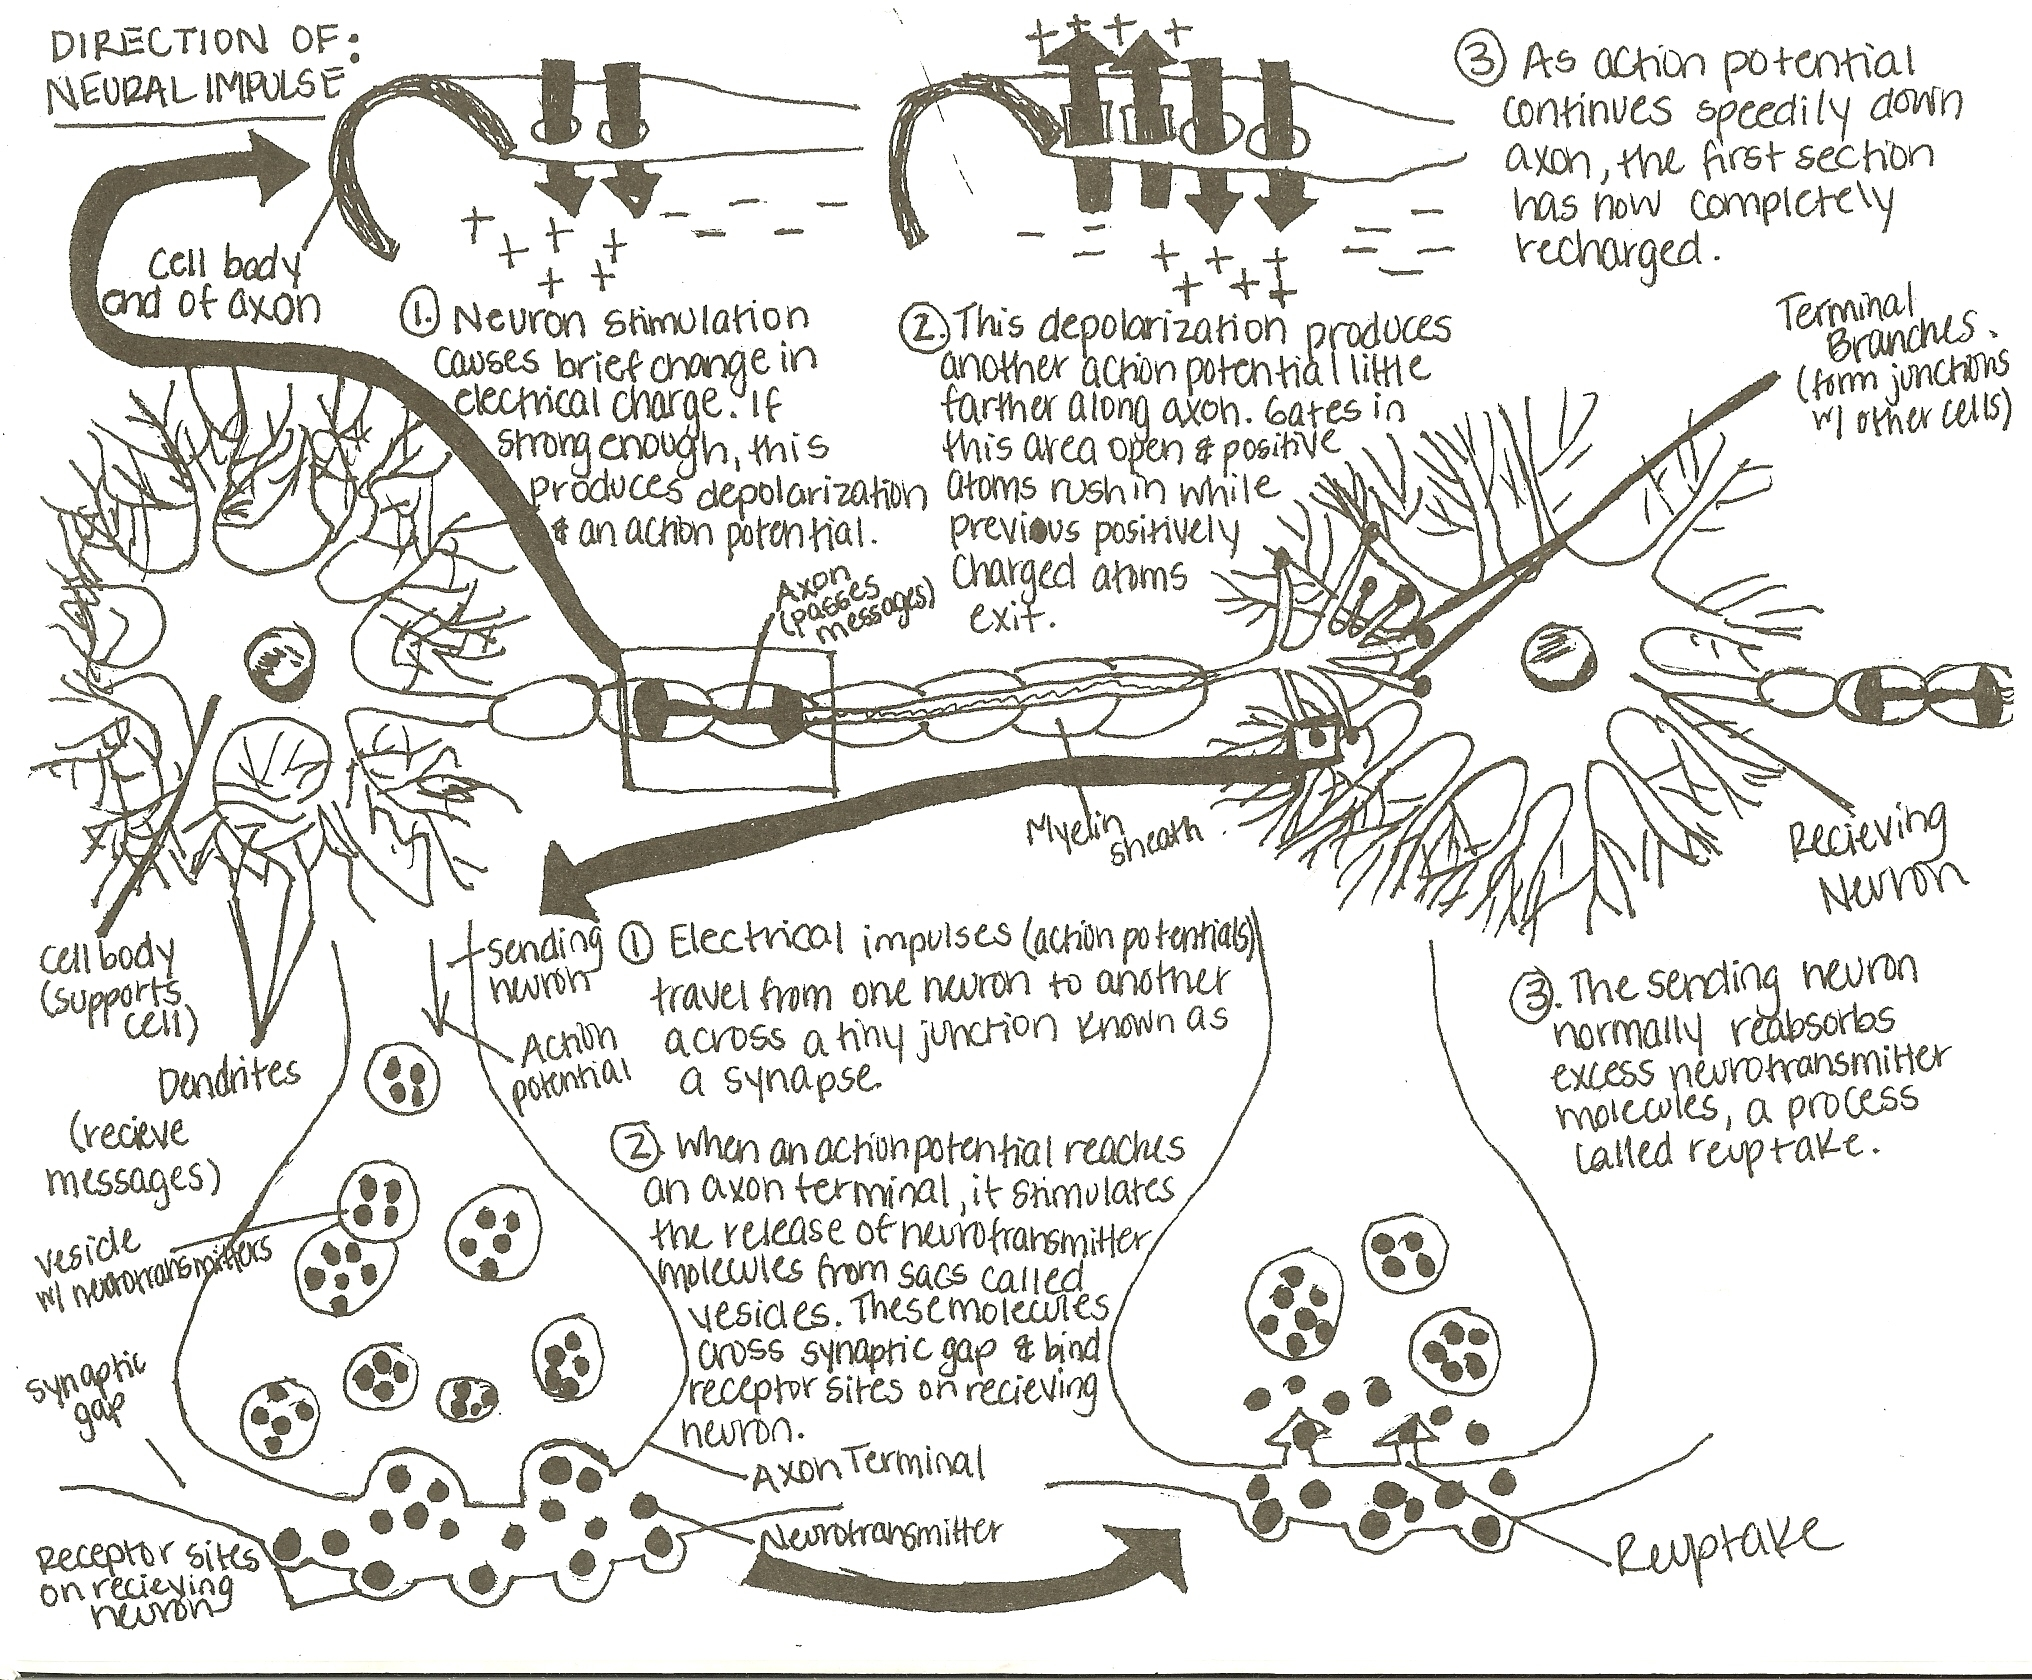 DIRECTION OF:
NEURAL IMPULSE
Cell body
end of axon
1. Neuron stimulation
causes brief change in
electrical charge. If
strong enough, this
produces depolarization
& an action potential.
2. This depolarization produces
another action potential little
farther along axon. Gates in
this area open & positive
atoms rush in while
previous positively
Charged atoms
exit.
3 As action potential
continues speedily down
axon, the first section
has now completely
recharged.
Terminal
Branches.
(form junctions
w/ other cells)
Axon
(passes
messages)
Myelin
sheath
Recieving
Neuron
Cell body
(supports
cell)
Dendrites
(recieve
messages)
Sending
neuron
Action
potential
1 Electrical impulses (action potentials)
travel from one neuron to another
across a tiny junction known as
a synapse.
2. When an action potential reaches
an axon terminal, it stimulates
the release of neurotransmitter
molecules from sacs called
vesicles. These molecules
cross synaptic gap & bind
receptor sites on recieving
neuron.
3. The sending neuron
normally reabsorbs
excess neurotransmitter
molecules, a process
called reuptake.
Vesicle
w/ neurotransmitters
Synaptic
gap
Axon Terminal
Neurotransmitter
Receptor sites
on recieving
neuron
Reuptake